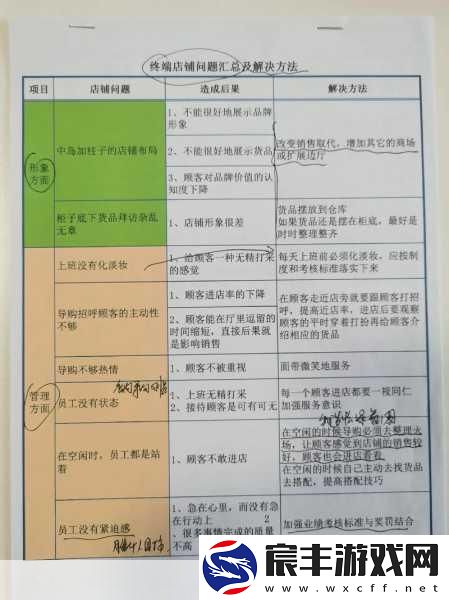 终端店铺问题汇总及解决方法
项目
店铺问题
造成后果
解决方法
形象
方面
中岛加枝子的店铺布局
1、不能很好地展示品牌
形象
2、不能很好地展示货品
3、顾客对品牌价值的认
知度下降
改变销售取代，增加其它的商场
或扩展边厅
柜子底下货品拜访杂乱
无章
1、店铺形象很差
货品摆放到仓库
如果货品还是摆在柜底，最好是
时时整理整齐
管理
方面
上班没有化淡妆
1、给顾客一种无精打采
的感觉
每天上班前必须化淡妆，应按制
度和考核标准落实下来
导购招呼顾客的主动性
不够
1、顾客进店率的下降
2、顾客能在厅里逗留的
时间缩短，直接后果就
是影响销售
在顾客走近店旁就要跟顾客打招
呼，提高近店率，进店后要观察
顾客的平时穿着打扮再给顾客介
绍相应的货品
导购不够热情
1、顾客不被重视
面带微笑地服务
员工没有状态
1、上班无精打采
2、接待顾客是可有可无
每一个顾客进店都要一视同仁
加强服务意识
在空闲时，员工都是站
着
1、顾客不敢进店
在空闲的时候导购必须去整理卖
场，让顾客感觉到店铺的销售较
好，顾客也会进店看看
在空闲的时候自己主动去找货品
去搭配，提高搭配技巧
员工没有紧迫感
1、急在心里，而没有急
在行动上 2
、很多事情完成的质量
不高
加强业绩考核标准与奖罚结合
宸丰游戏网
www.wxcff.net